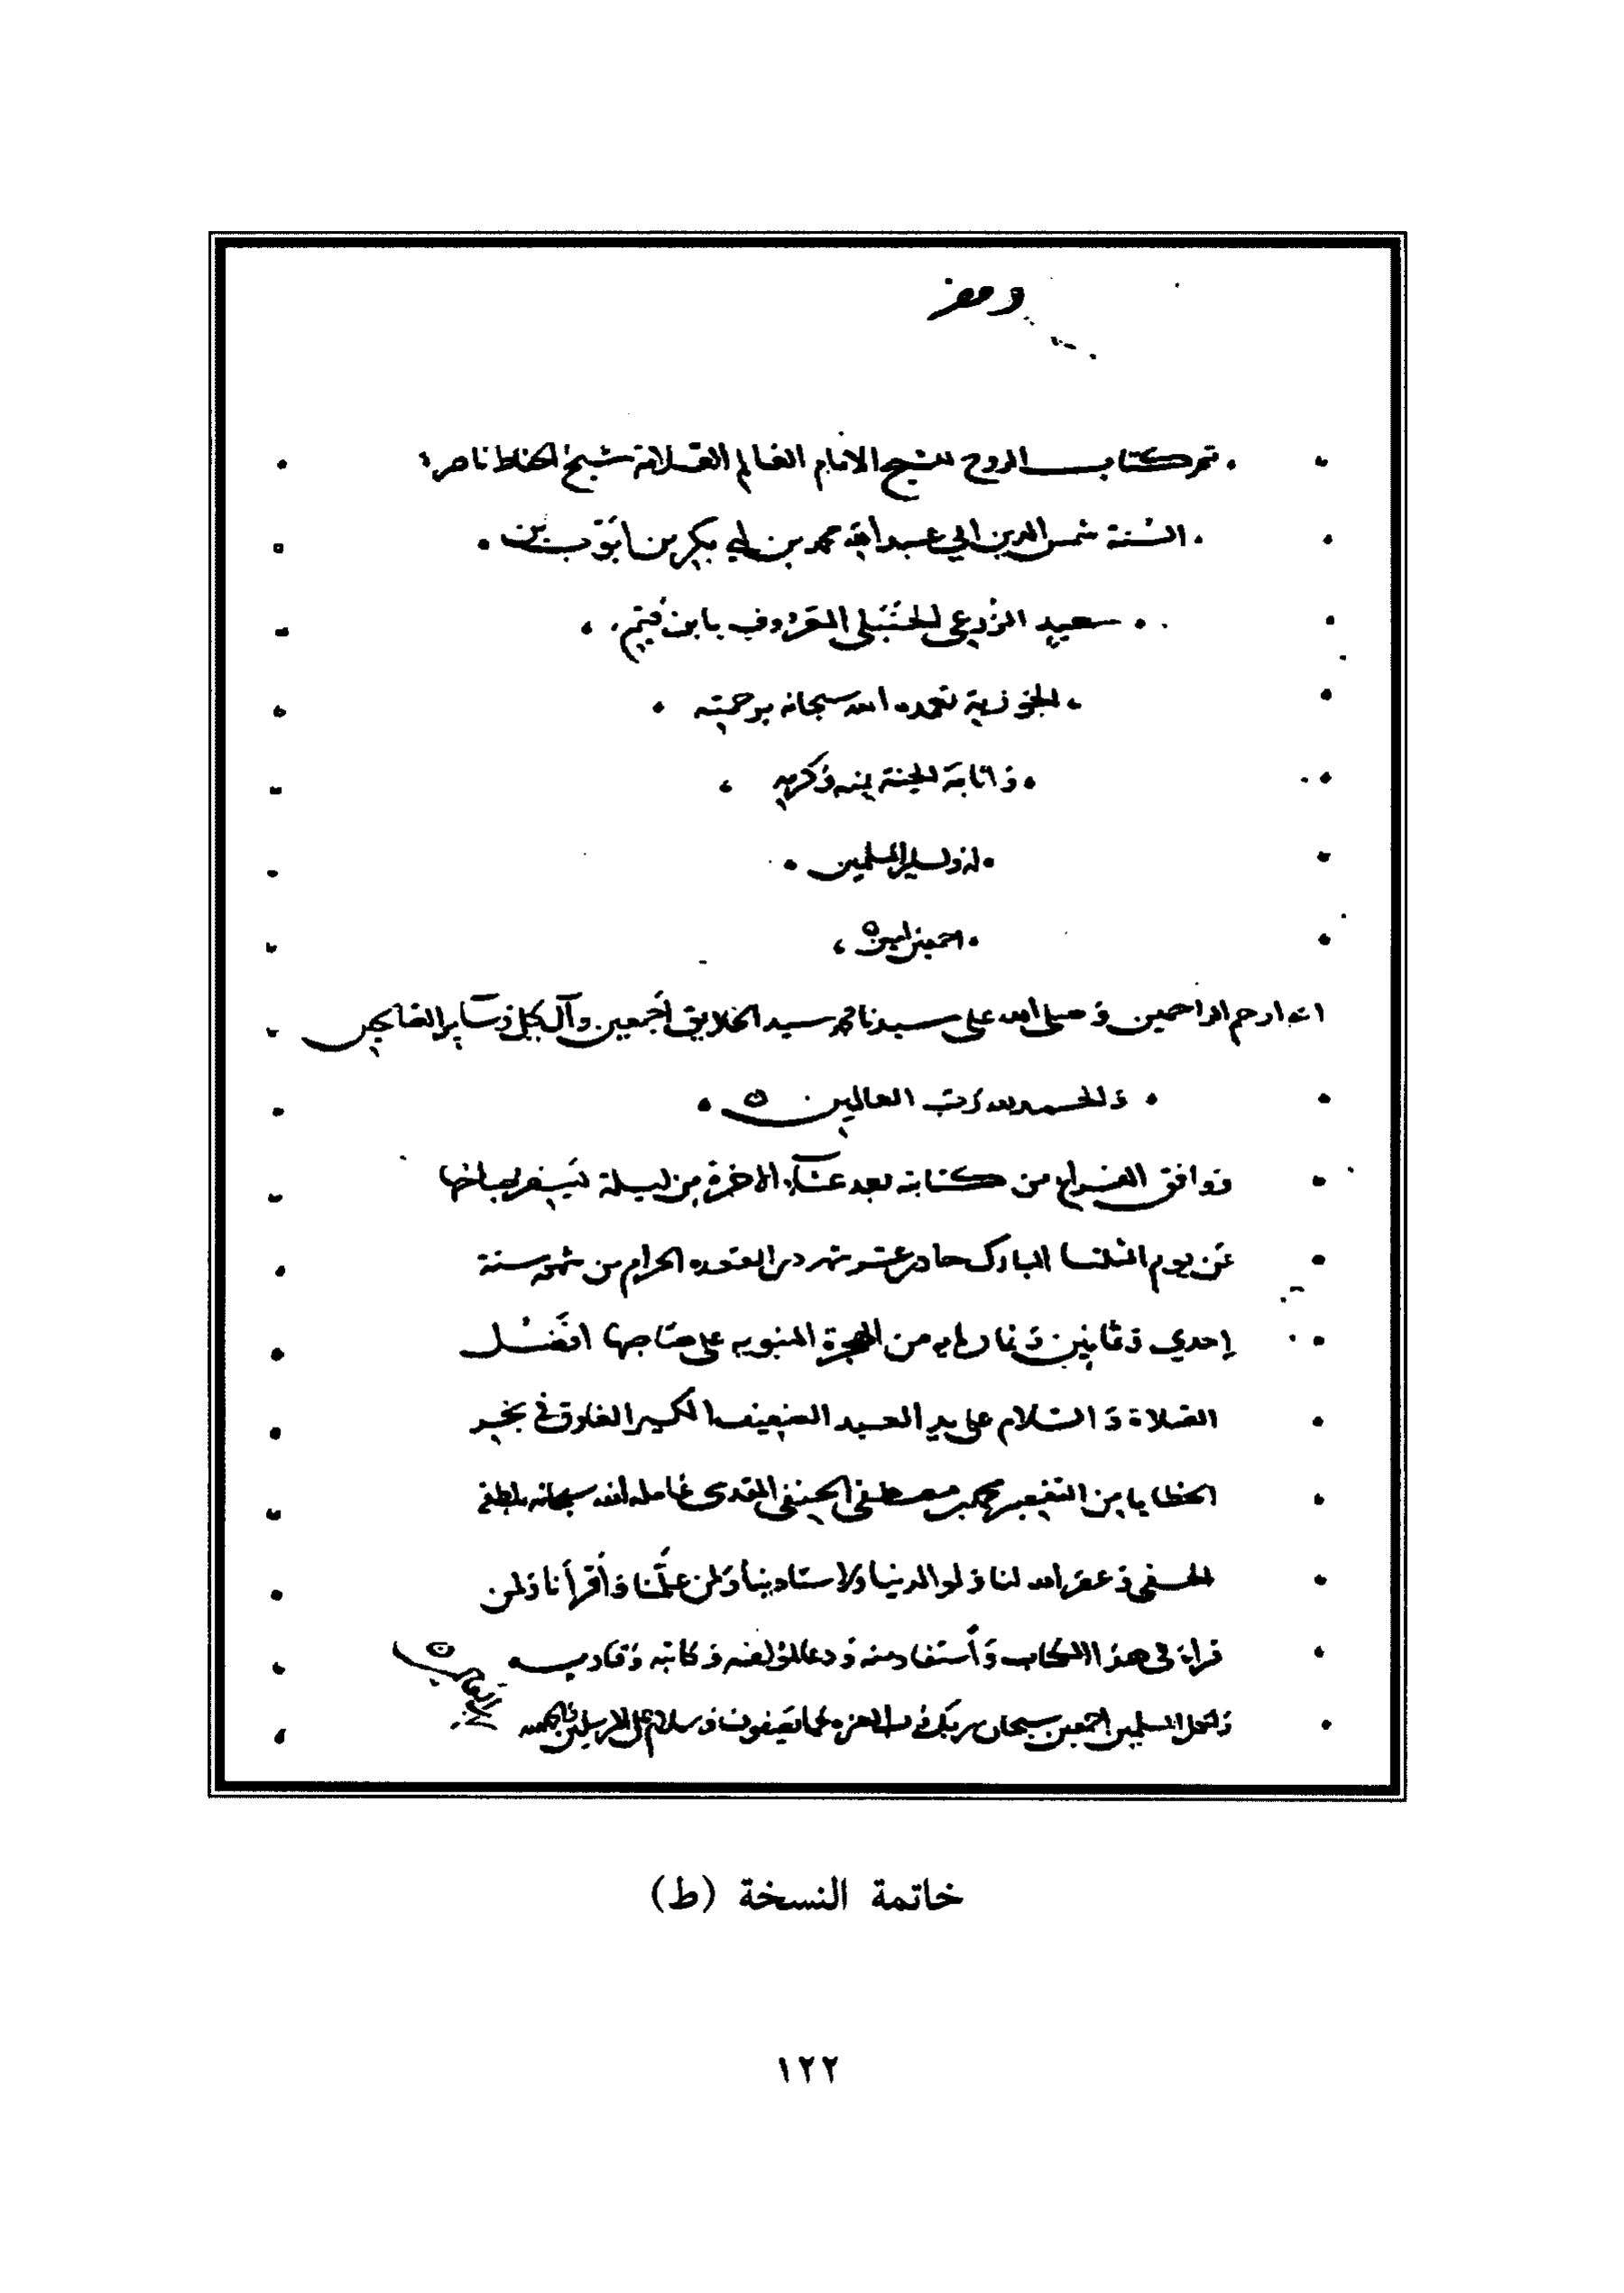 تم كتاب الروح للشيخ الامام العالم العلامة شيخ الحفاظ ناصر
السنة شمس الدين ابي عبد الله محمد بن ابي بكر بن ايوب بن
سعيد الزرعي الحنبلي المعروف بابن قيم
الجوزية تغمده الله سبحانه برحمته
واثابه الجنة بمنه وكرمه
لنا ولساير المسلمين
اجمعين امين
انه ارحم الراحمين وصلى الله على سيدنا محمد سيد الخلايق اجمعين وآل كل وساير الصالحين
والحمد لله رب العالمين
ووافق الفراغ من كتابته بعد عشاء الاخرة من ليلة يسفر صباحها
عن يوم الثلثا المبارك حادي عشر شهر ذي القعده الحرام من شهور سنة
إحدي وثمانين وثمان مايه من الهجرة النبويه على صاحبها افضل
الصلاة والسلام على يد العبد الضعيف الكسير الغارق في بحر
الخطايا من التقصير محمد بن مصطفى الحنفي المقدسي عامله الله سبحانه بلطفه
الخفي وغفر الله لنا ولوالدينا ولاستادينا ولمن علمنا وأقرأنا ولمن
قراء في هذا الكتاب وأستفاد منه ودعا لمؤلفه وكاتبه وقاريه
ولكل المسلمين اجمعين سبحان ربك رب العزه عما يصفون وسلام على المرسلين والحمد لله
رب العالمين
خاتمة النسخة (ط)
١٢٢